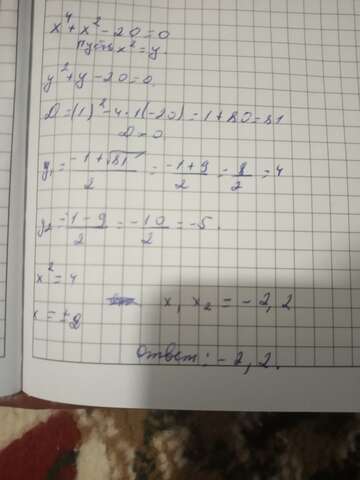 x⁴ + x² - 20 = 0
Пусть x² = y
y² + y - 20 = 0.
D = (1)² - 4 · 1(-20) = 1 + 80 = 81
D > 0
y₁ = (-1 + √81)/2 = (-1 + 9)/2 = 8/2 = 4
y₂ = (-1 - 9)/2 = -10/2 = -5.
x² = 4
x = ±2
x₁ x₂ = -2, 2
Ответ: -2, 2.